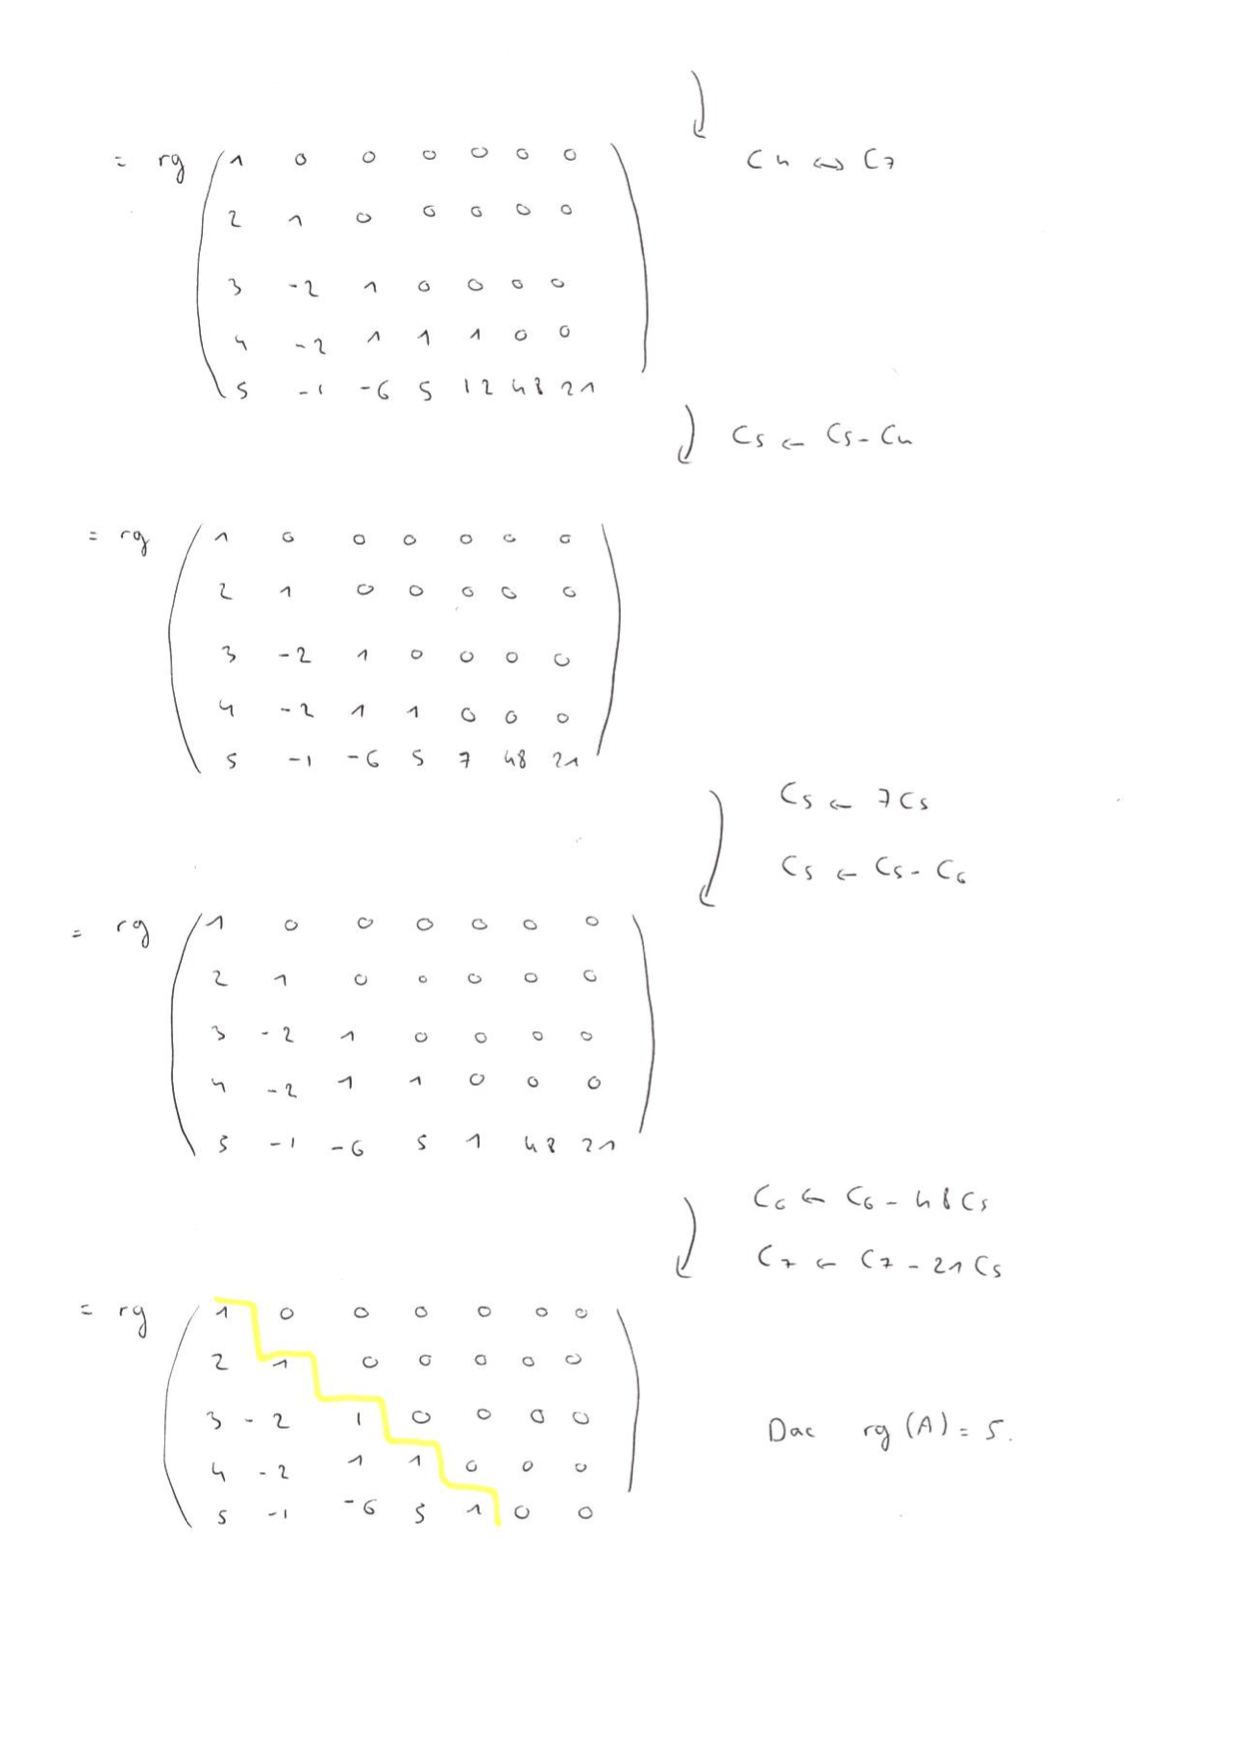 C4 ↔ C7
= rg ( 1 0 0 0 0 0 0
2 1 0 0 0 0 0
3 -2 1 0 0 0 0
4 -2 1 1 1 0 0
5 -1 -6 5 12 48 21 )
C5 ← C5 - C4
= rg ( 1 0 0 0 0 0 0
2 1 0 0 0 0 0
3 -2 1 0 0 0 0
4 -2 1 1 0 0 0
5 -1 -6 5 7 48 21 )
C5 ← 7C5
C5 ← C5 - C6
= rg ( 1 0 0 0 0 0 0
2 1 0 0 0 0 0
3 -2 1 0 0 0 0
4 -2 1 1 0 0 0
5 -1 -6 5 1 48 21 )
C6 ← C6 - 48C5
C7 ← C7 - 21C5
= rg ( 1 0 0 0 0 0 0
2 1 0 0 0 0 0
3 -2 1 0 0 0 0
4 -2 1 1 0 0 0
5 -1 -6 5 1 0 0 )
Donc rg(A) = 5.